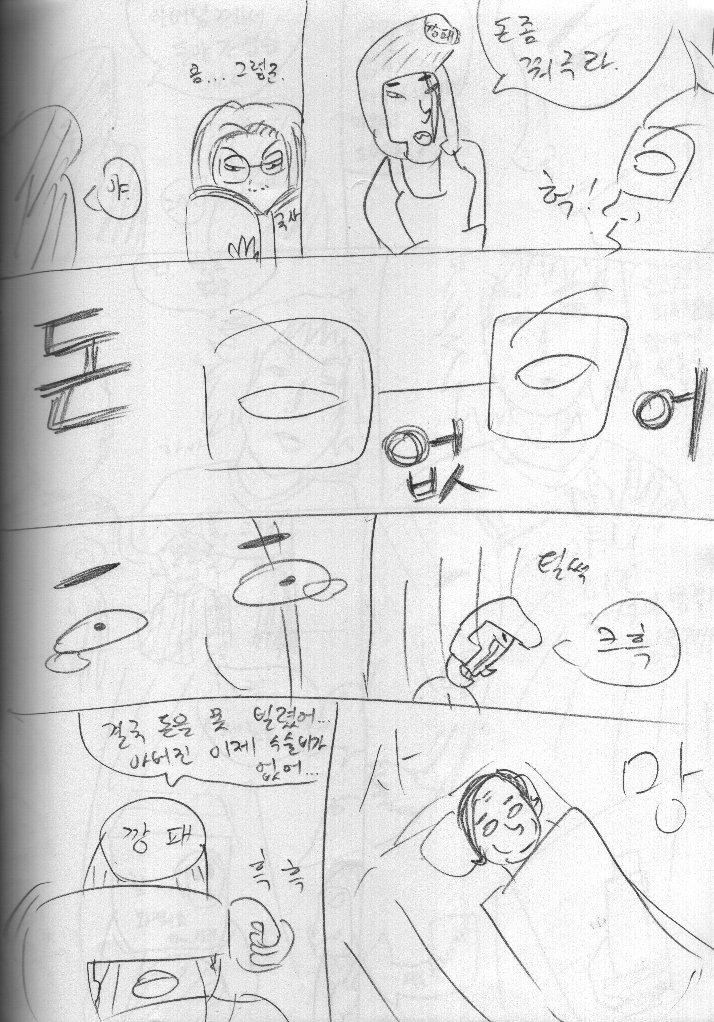 흠... 그렇군.
야.
국사
깡패
돈좀
꿔주라.
헉!
돈
없
어
털썩
크흑
결국 돈은 못 빌렸어...
아버진 이제 수술비가
없어...
깡패
흑흑
사 망